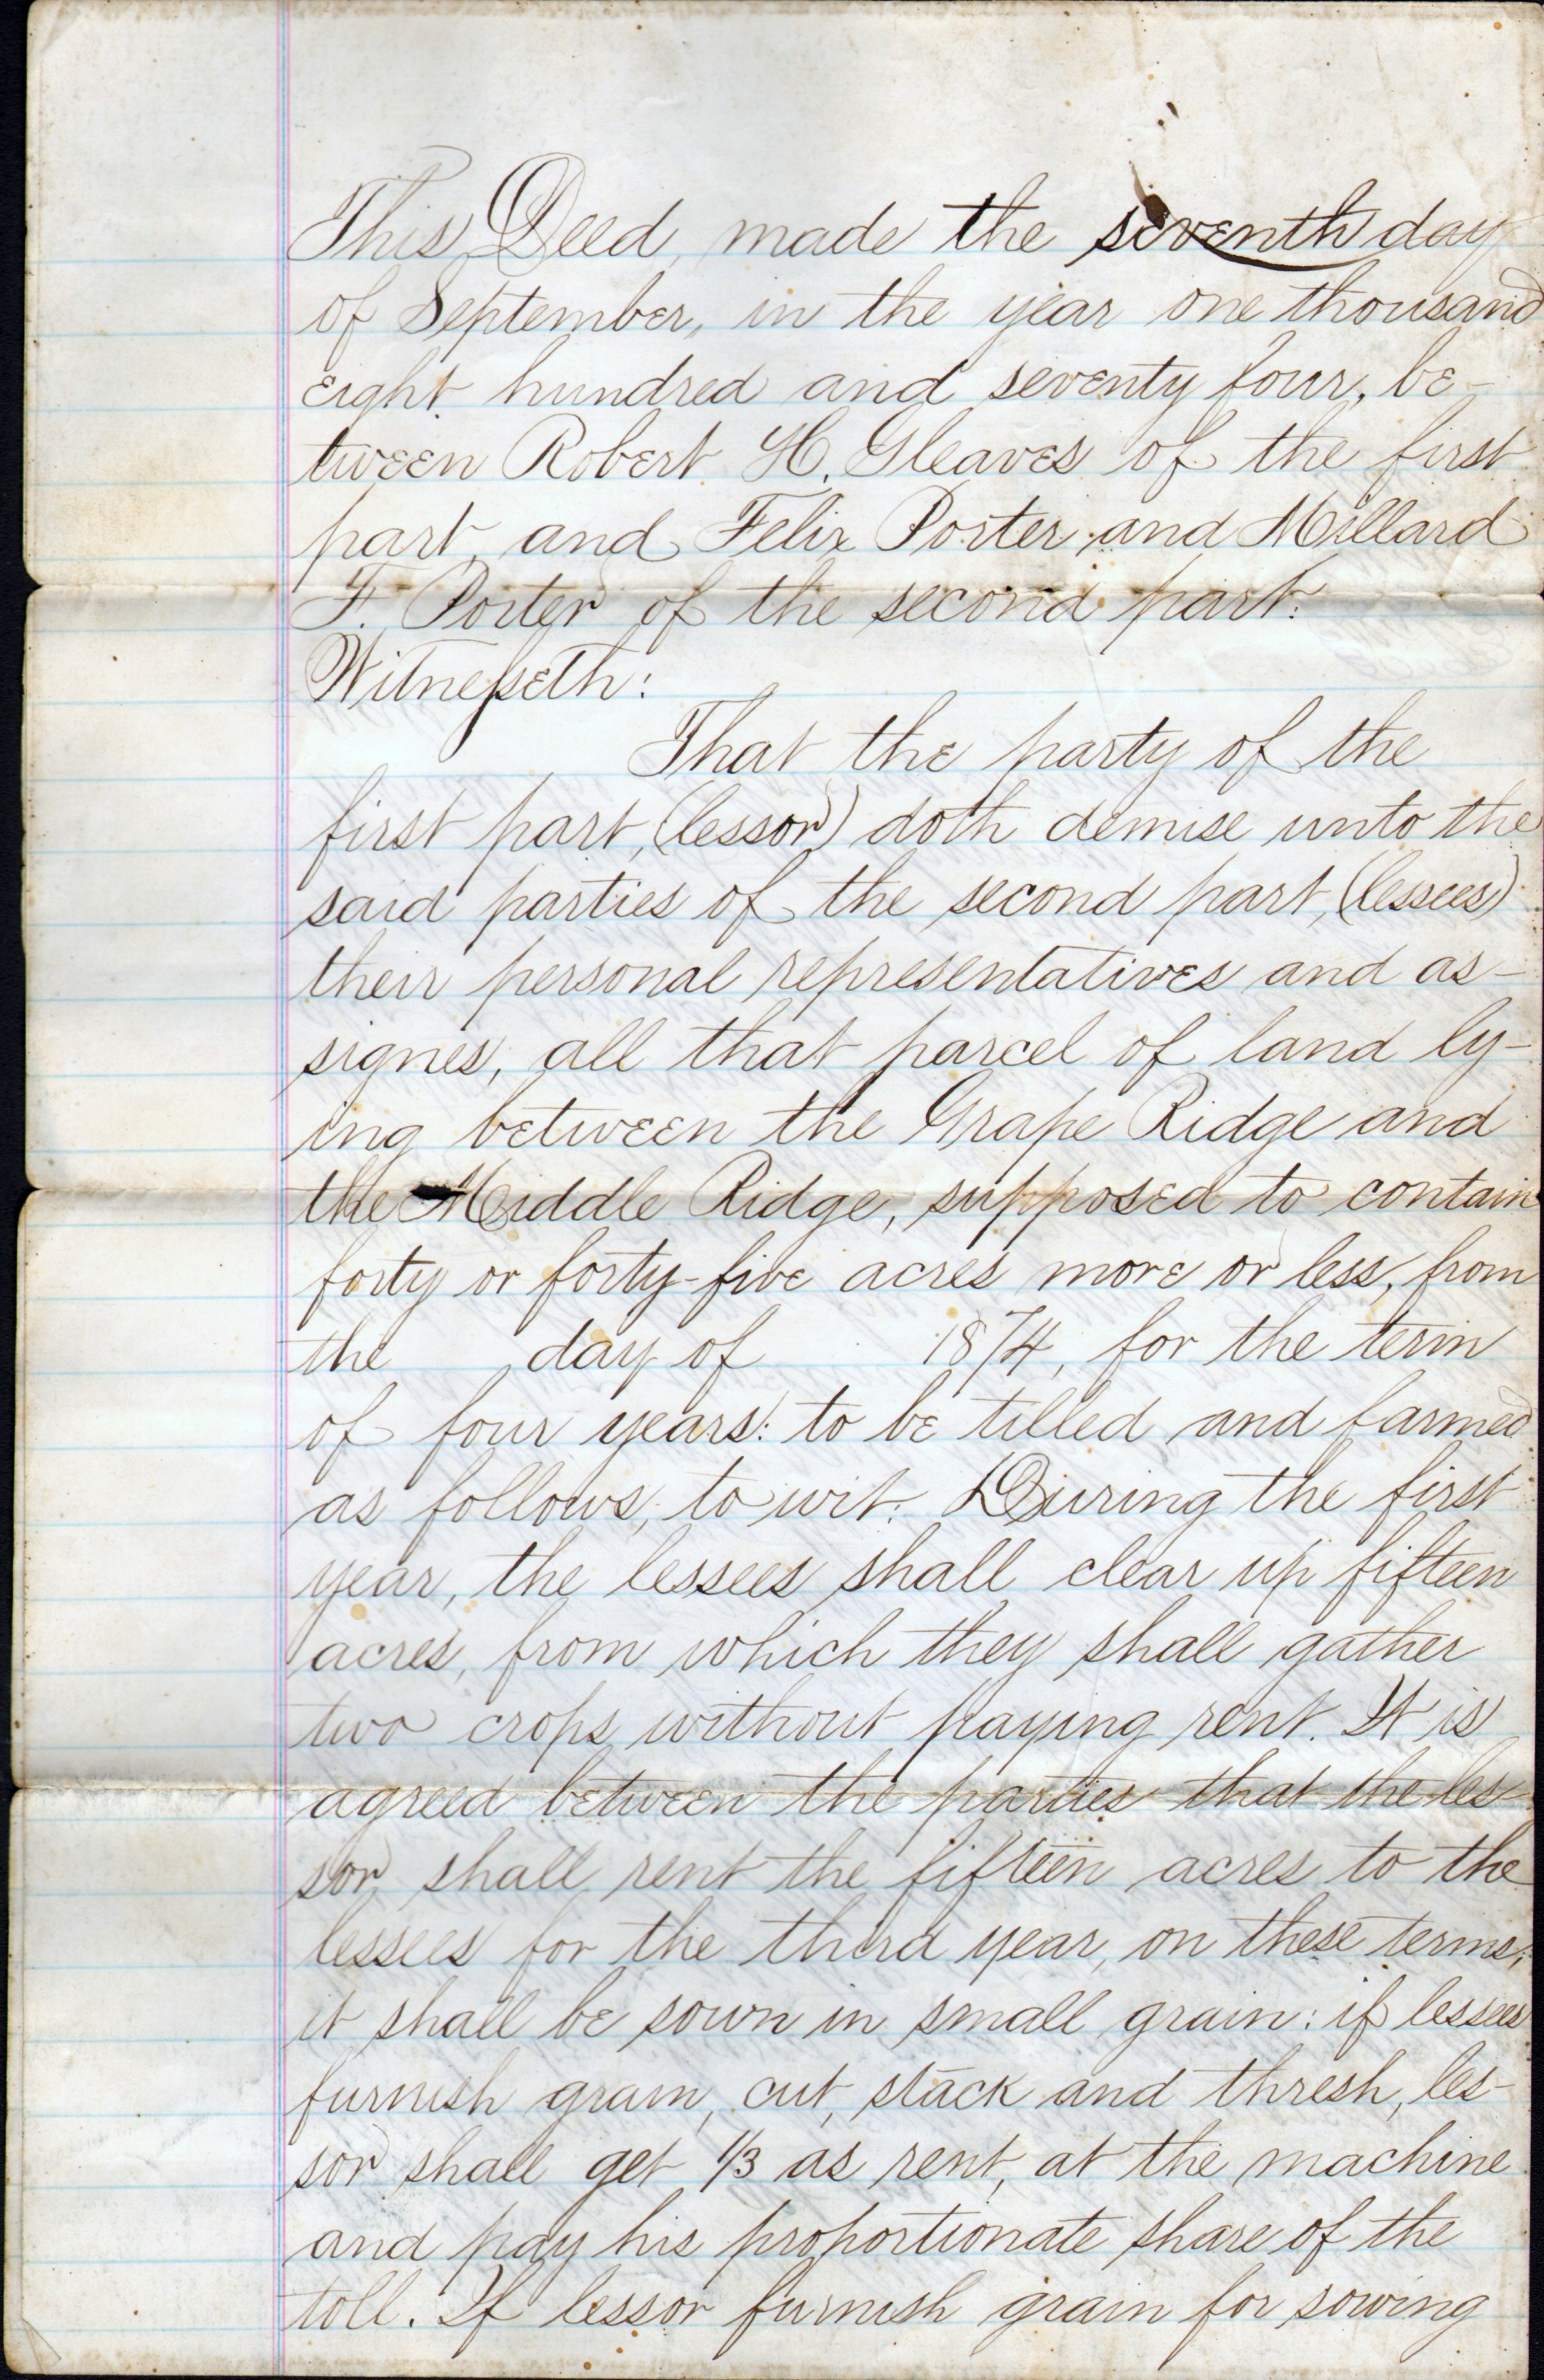 This Deed, made the seventh day
of September, in the year one thousand
eight hundred and seventy four, be-
tween Robert H. Gleaves of the first
part, and Felix Porter and Millard
F. Porter of the second part:
Witnesseth:
That the party of the
first part, (lessor) doth demise unto the
said parties of the second part, (lessees)
their personal representatives and as-
signes, all that parcel of land ly-
ing between the Grape Ridge and
the Middle Ridge, supposed to contain
forty or forty-five acres more or less, from
the day of 1874, for the term
of four years: to be tilled and farmed
as follows, to wit: During the first
year, the lessees shall clear up fifteen
acres, from which they shall gather
two crops without paying rent. It is
agreed between the parties that the les-
sor shall rent the fifteen acres to the
lessees for the third year, on these terms;
it shall be sown in small grain: if lessees
furnish grain, cut, stack and thresh, les-
sor shall get 1/3 as rent, at the machine
and pay his proportionate share of the
toll. If lessor furnish grain for sowing